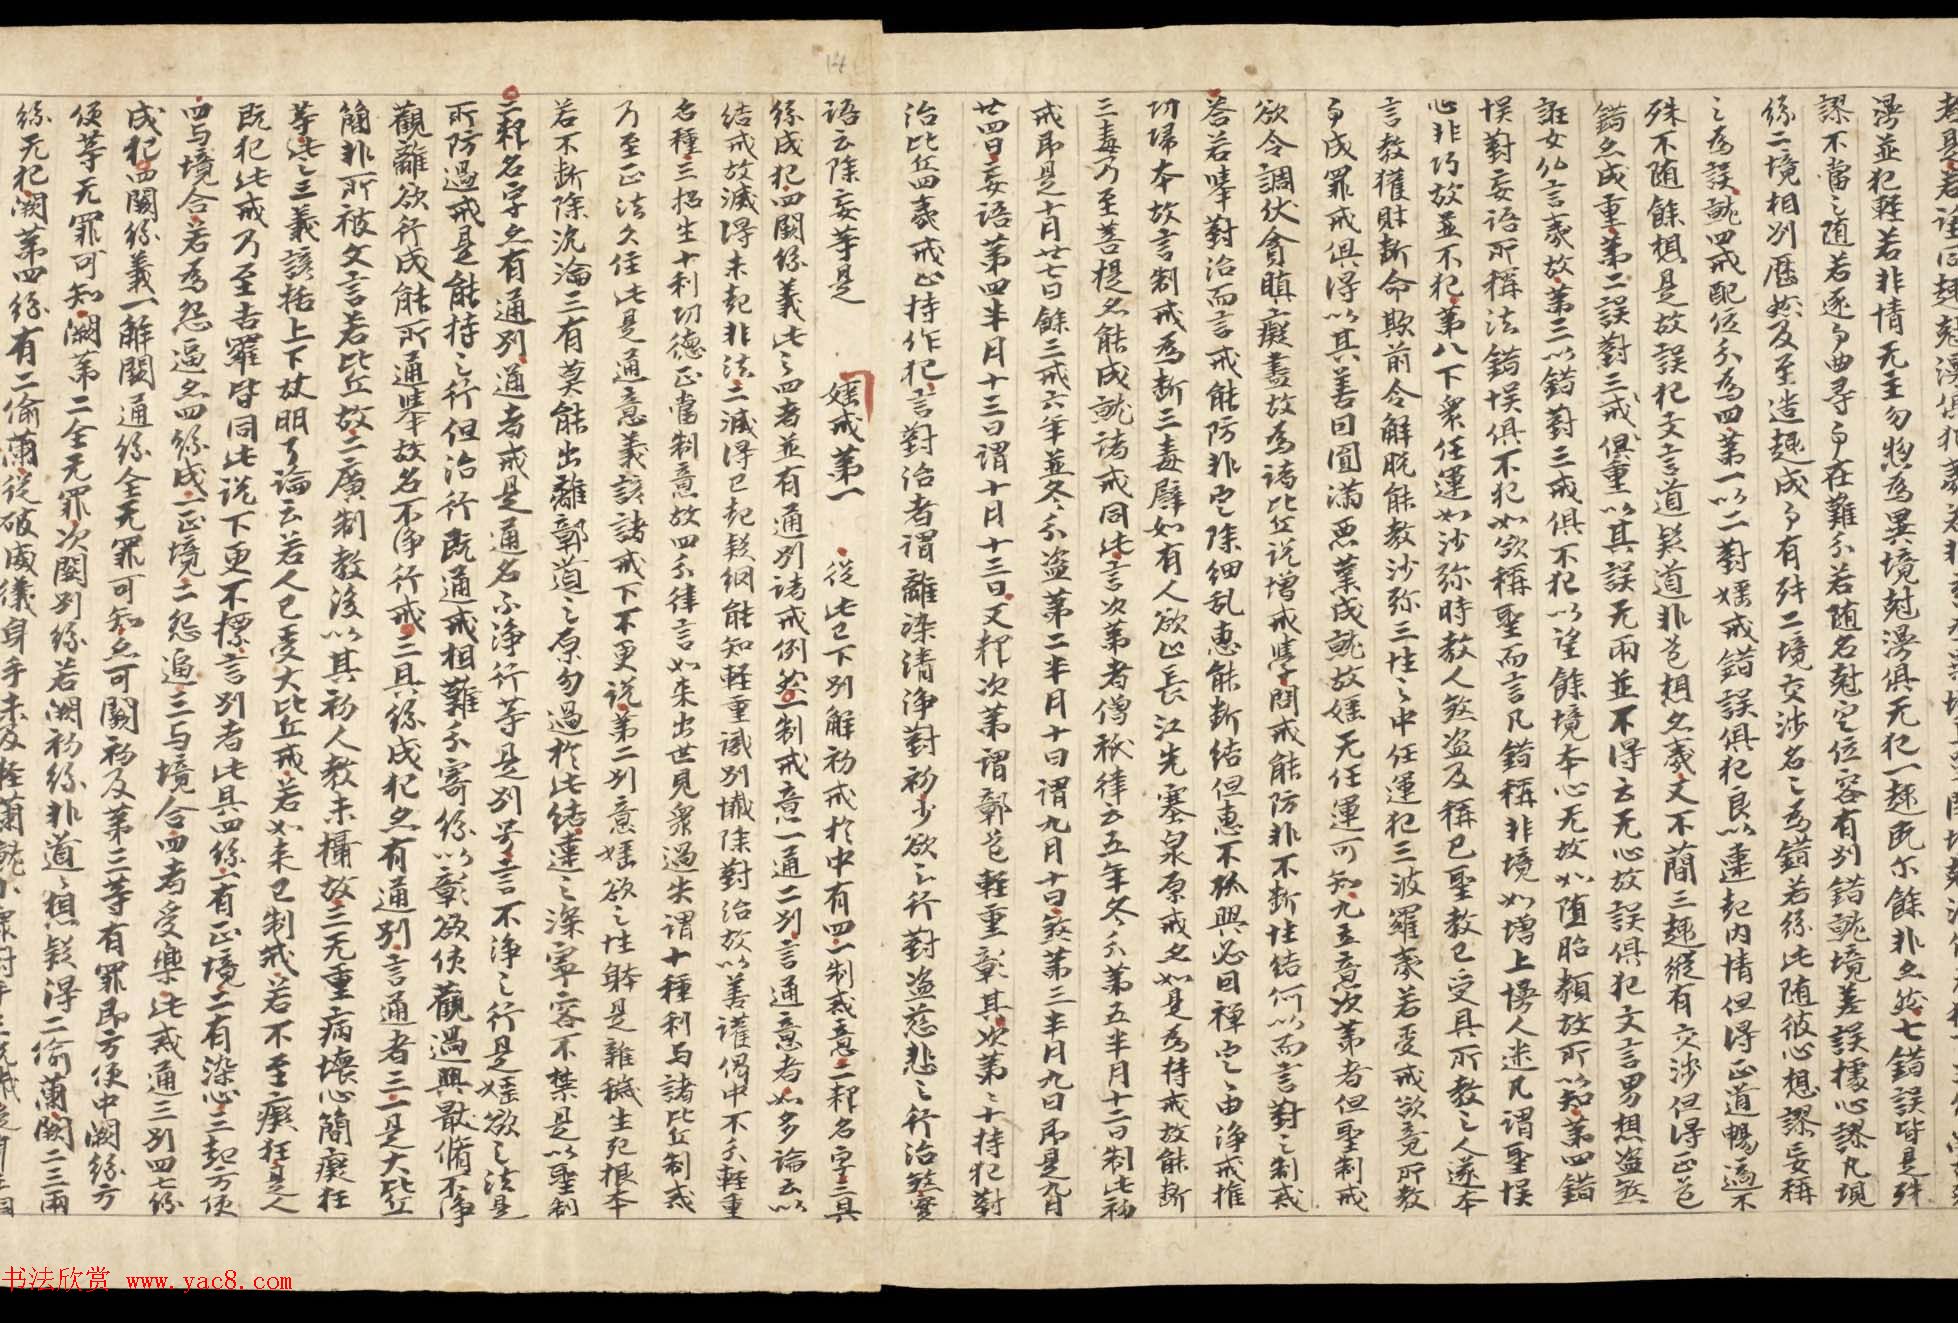 漫並犯輕若非情无主勿惣為異境尅漫俱无犯一趣既尔餘非亦然七錯誤皆是殊
謬不當之随若逐事曲尋事在難分若随名尅定位容有別錯就境差誤據心謬凡境
緣二境相別歷然及至造趣成事有殊二境交涉名之為錯若緣此随彼心想謬妄稱
之為誤就四戒配位分為四第一以二對婬戒錯誤俱犯良以連起内情但得正道暢適不
殊不随餘想是故誤犯文言道疑道非道想名戒文不簡三趣縱有交涉但得正道
錯亦成重第二誤對三戒俱重以其誤无兩並不得云无心故誤俱犯文言男想盜煞
誑女仏言戒故第三以錯對三戒俱不犯以望餘境本心无故如随相類故所以知第四錯
悮對妄語所稱法錯悮俱不犯如欲稱聖而言凡錯稱非境如增上慢人迷凡謂聖悮
心非巧故並不犯第八下衆任運如沙弥時教人煞盜及稱已聖教已受具所教之人遂本
言教獲財断命欺前令解脱能教沙弥三性之中任運犯三波羅夷若受戒欲竟所教
事成罪戒俱得以其善因圓滿惡業成就故婬无任運可知九五意次第者但聖制戒
欲令調伏貪瞋癡盡故為諸比丘説增戒學問戒能防非不断性結何以而言對之制戒
答若畢對治而言戒能防非定除細乱惠能断結但惠不孤興必因禪定之由浄戒推
切歸本故言制戒為断三毒譬如有人欲止長江先塞泉原戒亦如是為持戒故能断
三毒乃至菩提名能成就諸戒同此言次第者僧祇律云五年冬分第五半月十二日制此初
戒即是十月廿七日餘三戒六年並冬分盜第二半月十日謂九月十日煞第三半月九日即是九月
廿四日妄語第四半月十三日謂十月十三日又釋次第謂彰道輕重彰其次第之十持犯對
治比丘四義戒止持作犯言對治者謂離染清浄對初少欲之行對盜慈悲之行治煞實
語云除妄等是 婬戒第一 從此已下別解初戒於中有四一制戒意二釋名字三具
緣成犯四闕緣義此之四者並有通別諸戒例然一制戒意一通二別言通意者如多論云以
結戒故滅得未起非法二滅得已起疑網能知輕重識別懺除對治故以善護偈中不分輕重
名種三招生十利功德正當制意故四分律言如来出世見衆過失謂十種利与諸比丘制戒
乃至正法久住此是通意義該諸戒下不更説第二別意婬欲之性躰是雜穢生死根本
若不断除沉淪三有莫能出離彰道之原勿過於此結連之深寧容不禁是以聖制
二釋名字亦有通別通者戒是通名不浄行等是別号言不浄之行是婬欲之法是
所防過戒是能持之行但治行既通戒相難分寄緣以彰欲使觀過興猒脩不浄
觀離欲行成能所通舉故名不浄行戒三具緣成犯亦有通別言通者三一是大比丘
簡非所被文言若比丘故二廣制教後以其初人教未攝故三无重病壞心簡癡狂
等此之三義該括上下故明了論云若人已受大比丘戒若如来已制戒若不至癡狂是人
既犯此戒乃至吉羅皆同此説下更不摽言別者此具四緣一有正境二有染心三起方便
四与境合若為怨逼亦四緣成一正境二怨逼三与境合四者受樂此戒通三別四七緣
成犯四闕緣義一解闕通緣全无罪可知亦可闕初及第三等有罪即方便中闕緣方
便等无罪可知闕第二全无罪次闕別緣若闕初緣非道道想疑得二偷蘭闕二三兩
緣无犯闕第四緣有二偷蘭從破威儀身手未及
書法欣賞 www.yac8.com